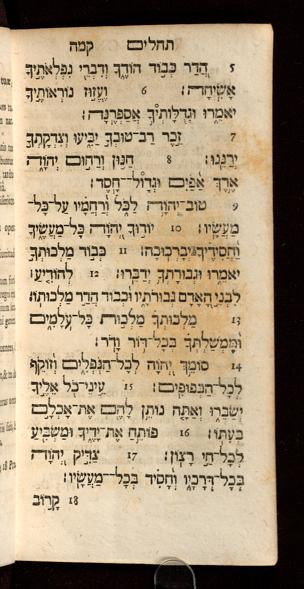 תהלים קמה
5 הֲדַר כְּבוֹד הוֹדֶךָ וְדִבְרֵי נִפְלְאֹתֶיךָ
אָשִׂיחָה׃ 6 וֶעֱזוּז נוֹרְאוֹתֶיךָ
יֹאמֵרוּ וּגְדֻלּוֹתֶיךָ אֲסַפְּרֶנָּה׃
7 זֵכֶר רַב־טוּבְךָ יַבִּיעוּ וְצִדְקָתְךָ
יְרַנֵּנוּ׃ 8 חַנּוּן וְרַחוּם יְהוָה
אֶרֶךְ אַפַּיִם וּגְדוֹל־חָסֶד׃
9 טוֹב־יְהוָה לַכֹּל וְרַחֲמָיו עַל־כָּל־
מַעֲשָׂיו׃ 10 יוֹדוּךָ יְהוָה כָּל־מַעֲשֶׂיךָ
וַחֲסִידֶיךָ יְבָרְכוּכָה׃ 11 כְּבוֹד מַלְכוּתְךָ
יֹאמֵרוּ וּגְבוּרָתְךָ יְדַבֵּרוּ׃ 12 לְהוֹדִיעַ׀
לִבְנֵי הָאָדָם גְּבוּרֹתָיו וּכְבוֹד הֲדַר מַלְכוּתוֹ׃
13 מַלְכוּתְךָ מַלְכוּת כָּל־עֹלָמִים
וּמֶמְשַׁלְתְּךָ בְּכָל־דּוֹר וָדֹר׃
14 סוֹמֵךְ יְהוָה לְכָל־הַנֹּפְלִים וְזוֹקֵף
לְכָל־הַכְּפוּפִים׃ 15 עֵינֵי־כֹל אֵלֶיךָ
יְשַׂבֵּרוּ וְאַתָּה נוֹתֵן לָהֶם אֶת־אָכְלָם
בְּעִתּוֹ׃ 16 פּוֹתֵחַ אֶת־יָדֶיךָ וּמַשְׂבִּיעַ
לְכָל־חַי רָצוֹן׃ 17 צַדִּיק יְהוָה
בְּכָל־דְּרָכָיו וְחָסִיד בְּכָל־מַעֲשָׂיו׃
18 קָרוֹב